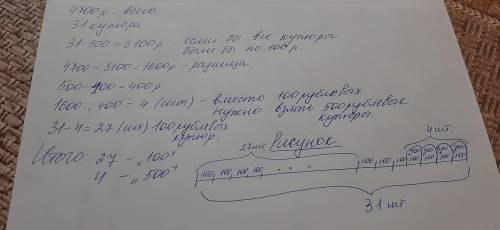 4700р - всего.
31 купюра.
31·100 = 3100р - если бы все купюры
были бы по 100р.
4700 - 3100 = 1600р - разница
500 - 100 = 400р
1600 : 400 = 4 (шт) - вместо 100рублёвых
нужно взять 500рублевые
купюры.
31-4 = 27 (шт) 100рублевых
купюр.
Итого: 27 - „100“
4 - „500“
Рисунок
4 шт.
27шт.
400 400 400 400
100, 100, 100, 100 . . . 100, 100, 100 100 100 100 100
31 шт